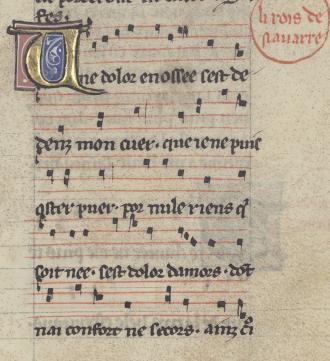 fes.
li rois de
nauarre
Vne dolor enossee sest de
denz mon cuer. que iene puis
oster puer. por nule riens q̃
soit nee. sest dolor damors. dõt
nai confort ne secors. ainz cri